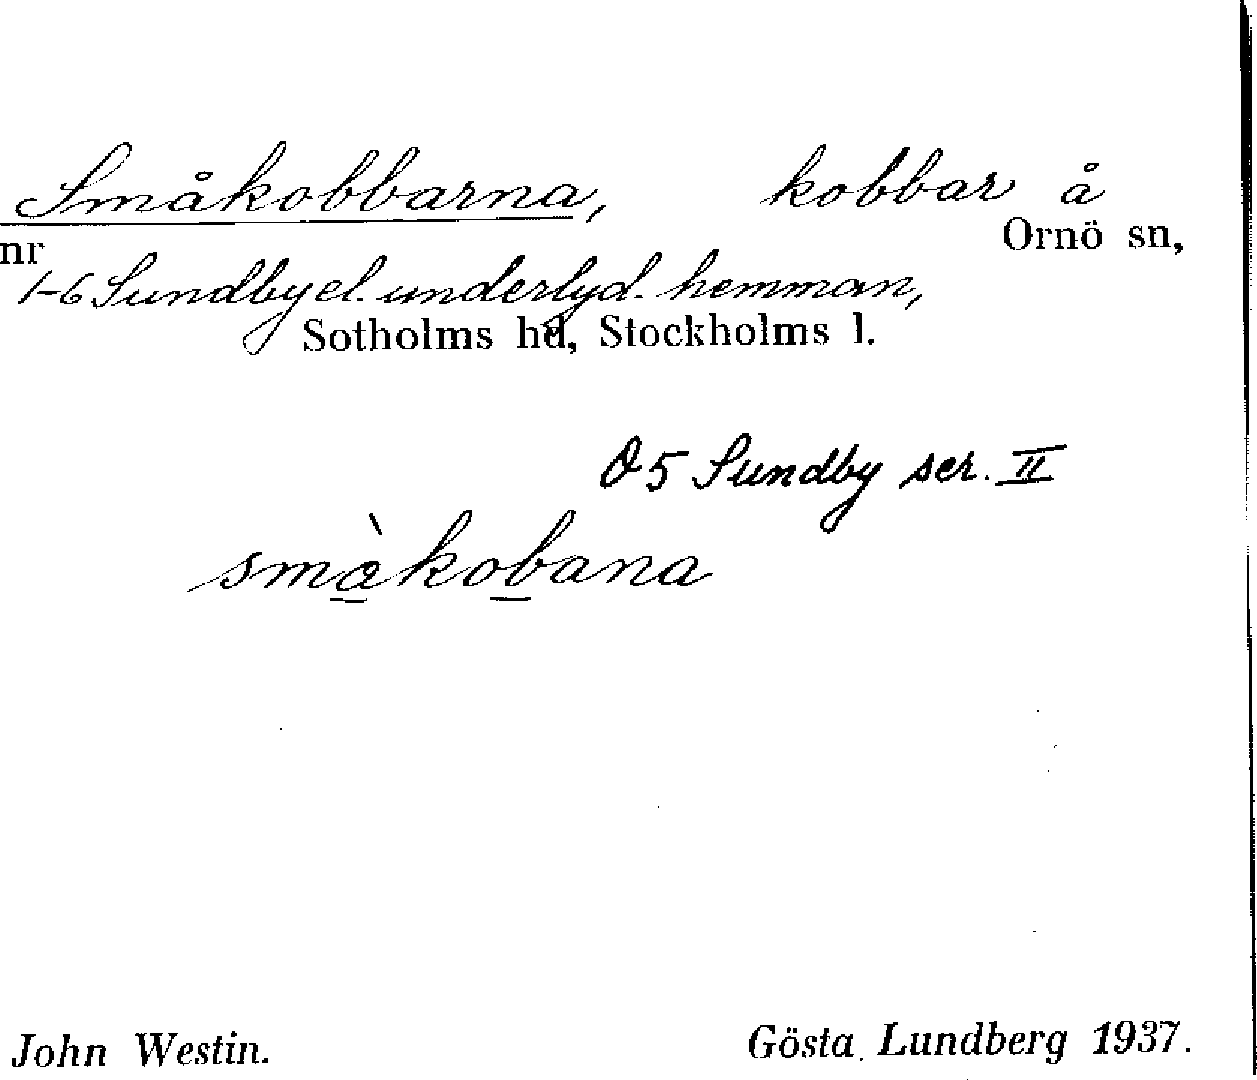 Småkobbarna, kobbar å
nr Ornö sn,
1-6 Sundby el. underlyd. hemman,
Sotholms hd, Stockholms l.
Ö5 Sundby ser. II
småkobana
John Westin. Gösta Lundberg 1937.